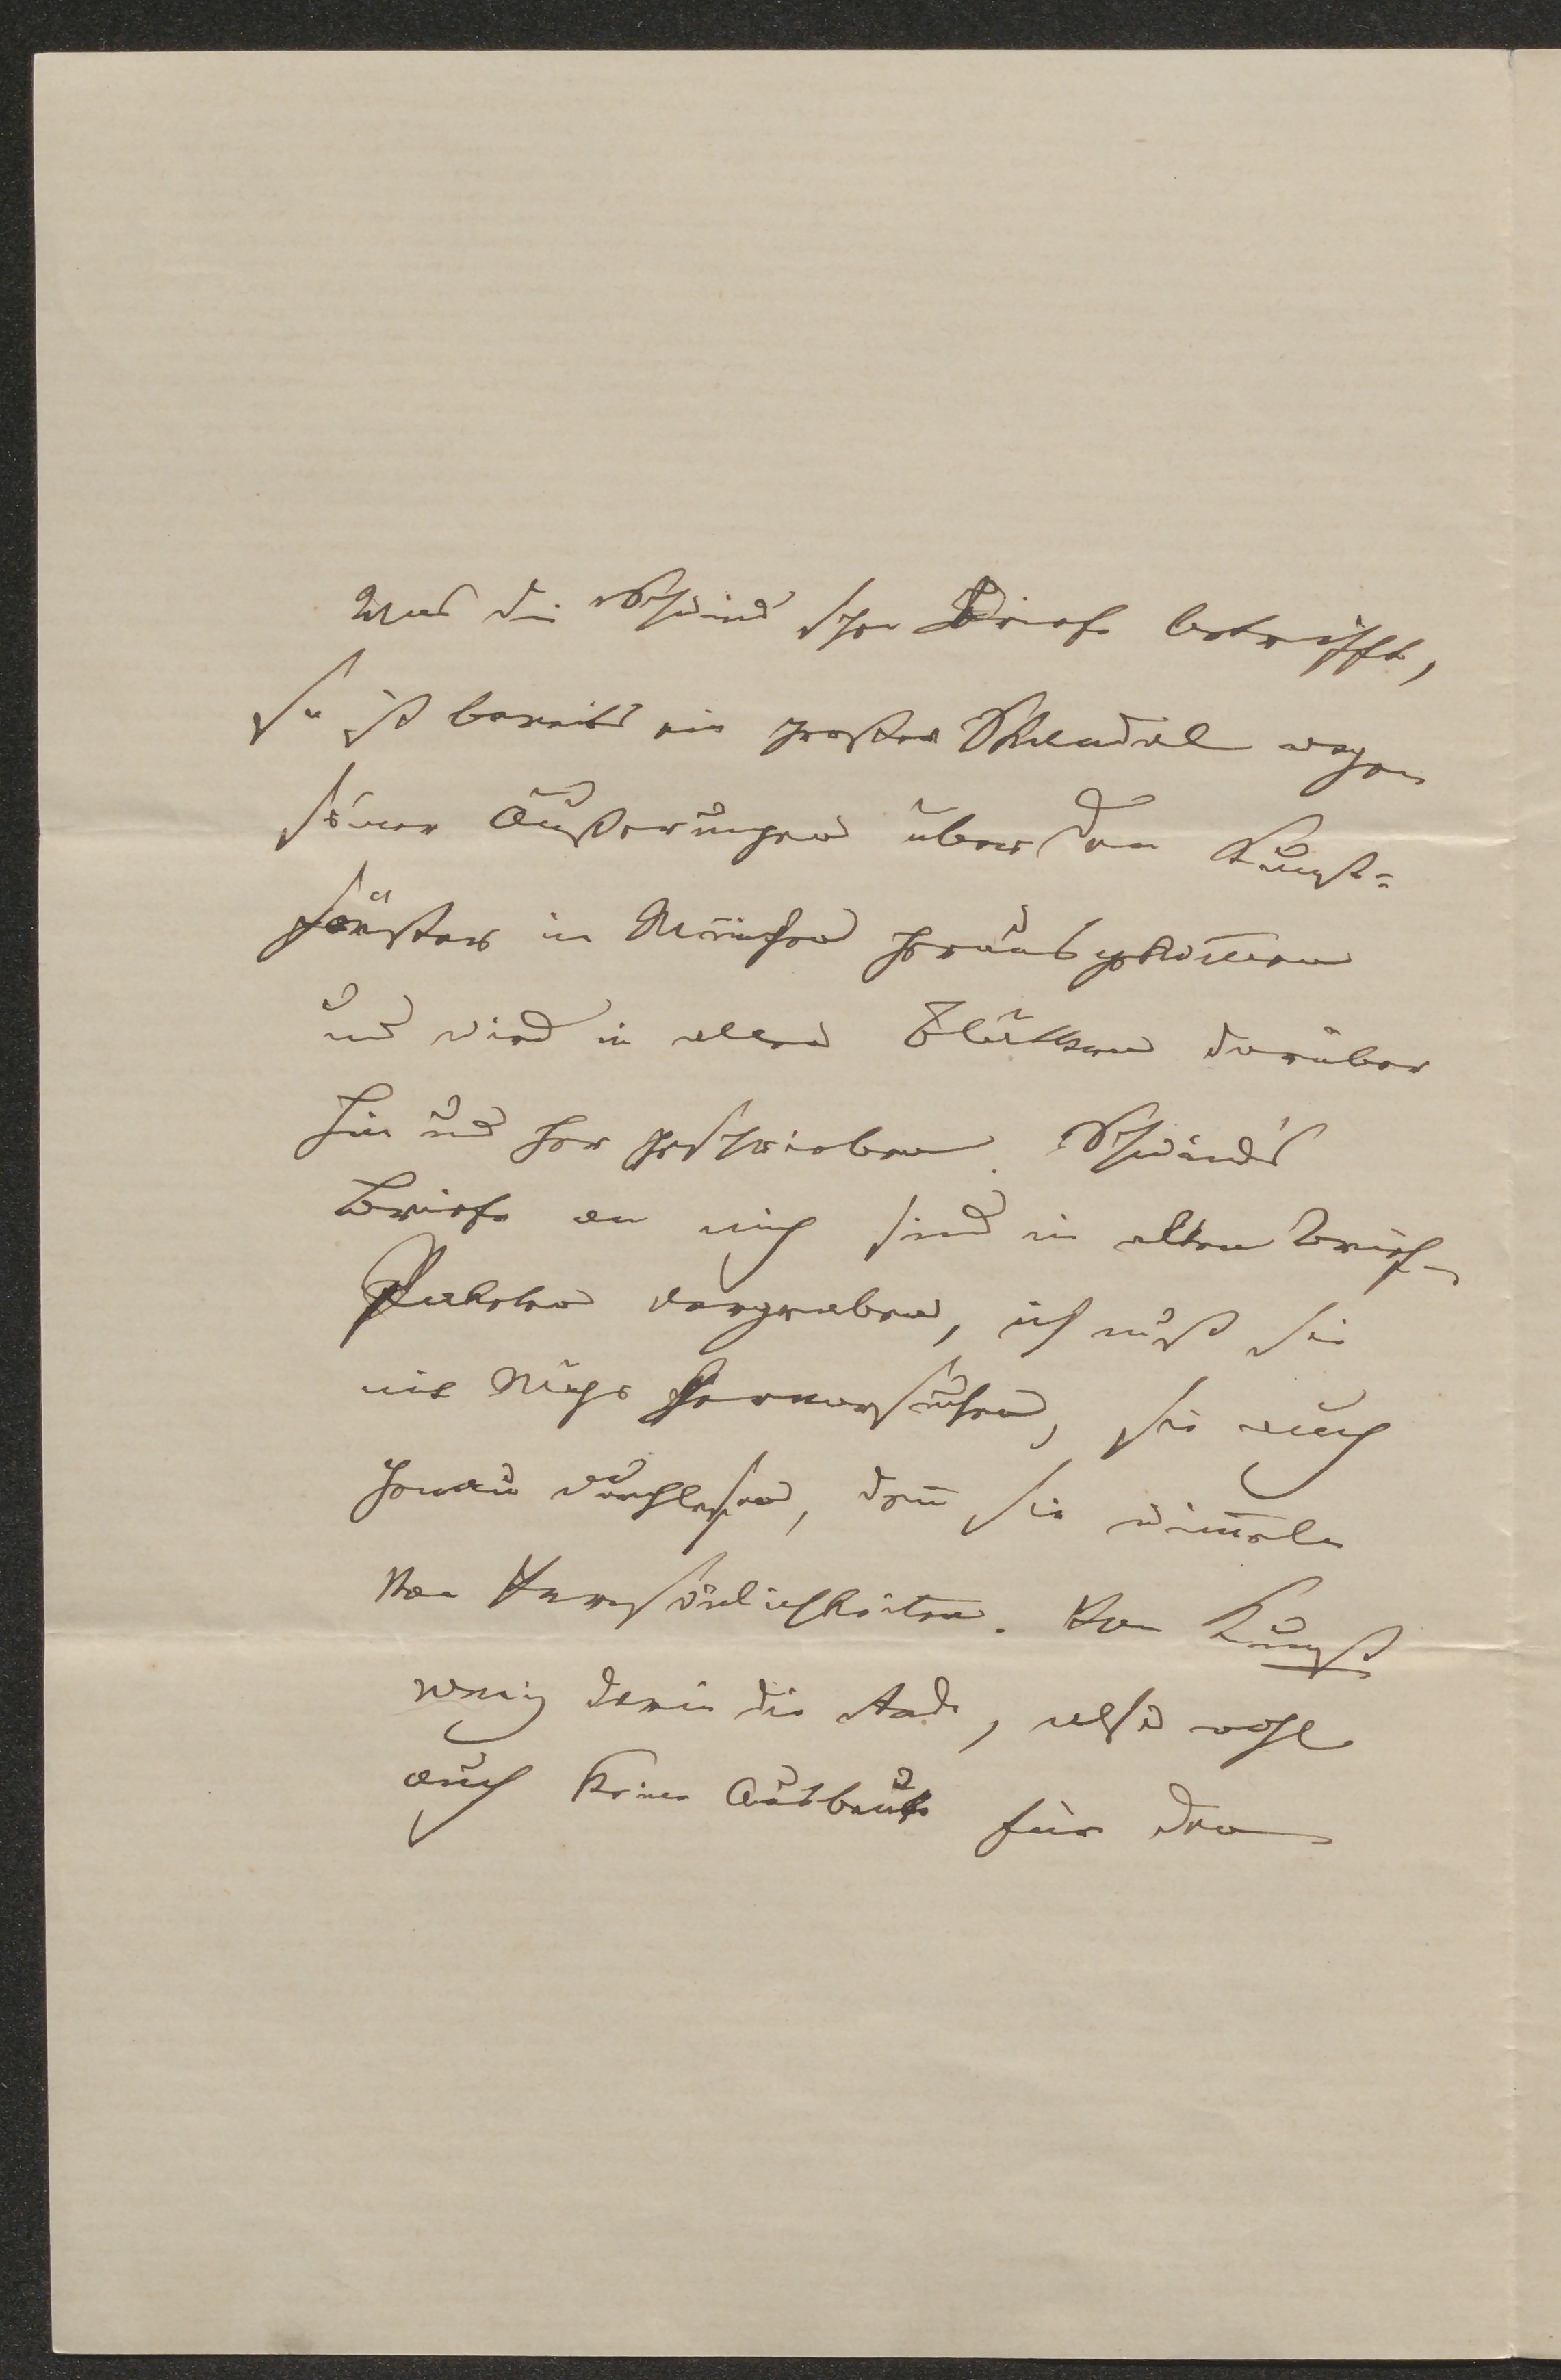 Was die Schwind'schen Briefe betrifft,
so ist bereits ein großer Skandal wegen
seiner Äußerungen über den Kunst=
förster in München herausgekom̅en
und wird in allen Blättern darüber
hin und her geschrieben. Schwind's
Briefe an mich sind in alten Brief-
Paketen vergraben, ich muß sie
mit Mühe hervorsuchen, sie auch
genau durchlesen, den̅ sie wim̅eln
von Persönlichkeiten. Von Kunst
wenig darin die Rede, also wohl
auch keine Ausbeute für den